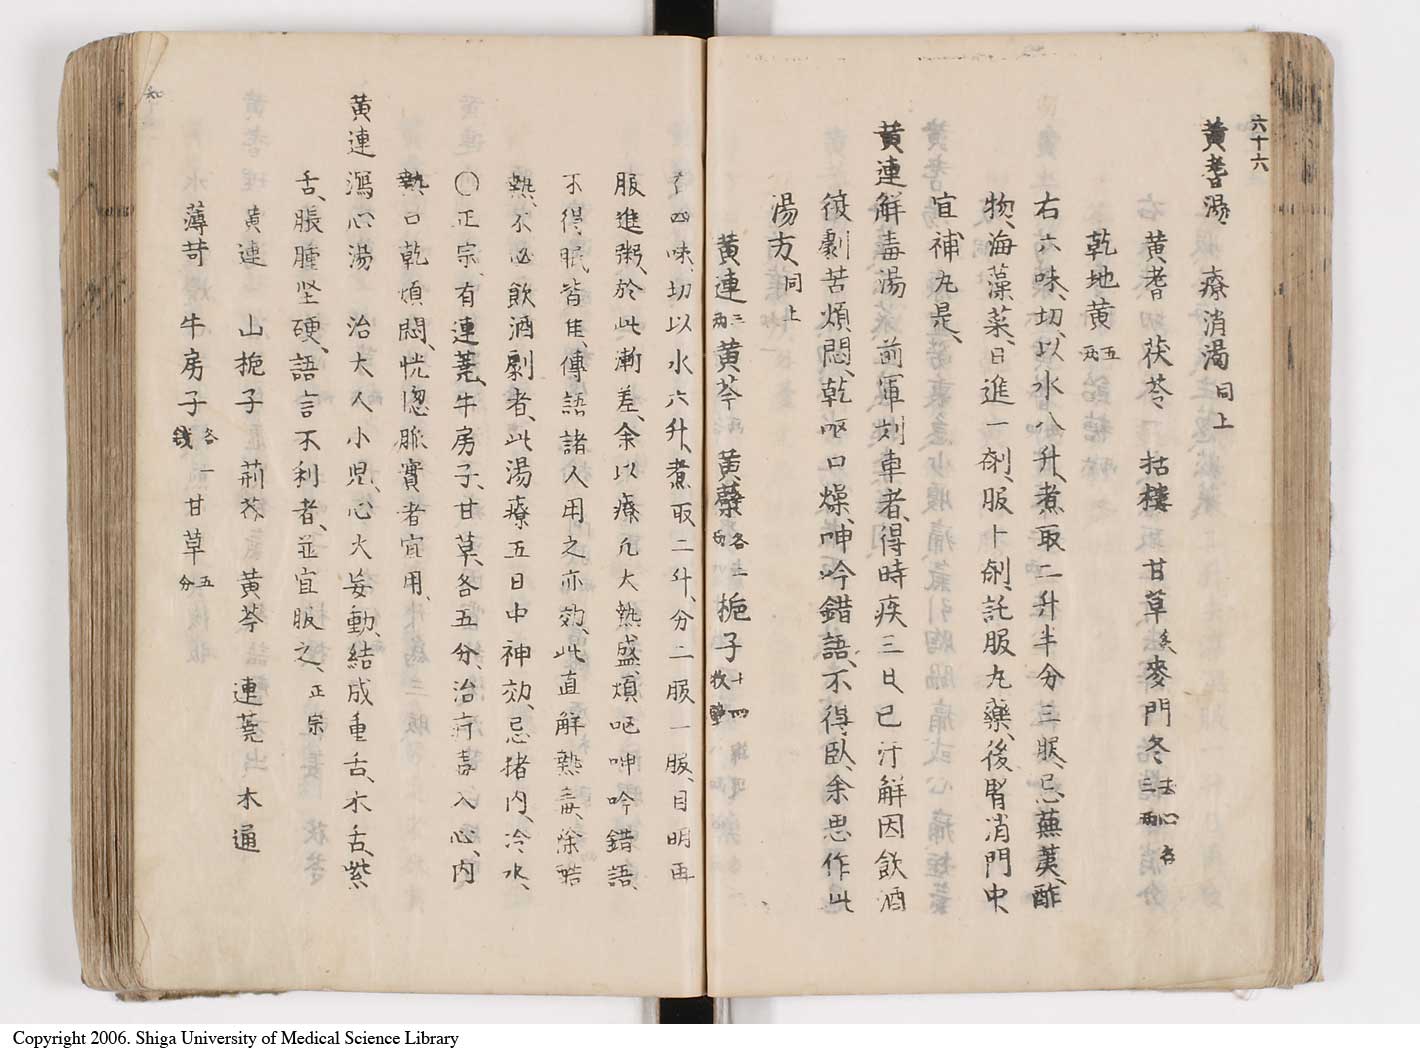 六十六
黄耆湯 療消渇 同上
黄耆 茯苓 括樓 甘草炙 麥門冬去心各三兩
乾地黄五兩
右六味、切、以水八升、煮取二升半分三服、忌蕪荑、酢
物、海藻菜、日進一剤、服十剤、訖服九藥、後腎消門中
宜補丸是、
黄連解毒湯 前軍督車者、得時疾三日已汗解因飲酒
復劇苦煩悶、乾嘔口燥、呻吟錯語、不得臥、余思作此
湯方、同上
黄連三兩 黄芩 黄蘗各二兩 梔子十四枚擘
右四味、切以水六升、煮取二升、分二服一服、目明再
服進粥、於此漸差、余以療凡大熱盛煩嘔呻吟錯語、
不得眠皆佳、傳語諸人用之亦効、此直解熱毒、除酷
熱、不必飲酒劇者、此湯療五日中神効、忌猪肉、冷水、
〇正宗、有連蕘、牛房子、甘草、各五分、治疔毒入心、内
熱口乾煩悶、恍惚脈實者宜用、
黄連瀉心湯 治大人小児、心火妄動、結成重舌、木舌、紫
舌、脹腫堅硬、語言不利者、並宜服之、正宗
黄連 山梔子 荊芥 黄芩 連蕘 木通
薄苛 牛房子各一錢 甘草五分